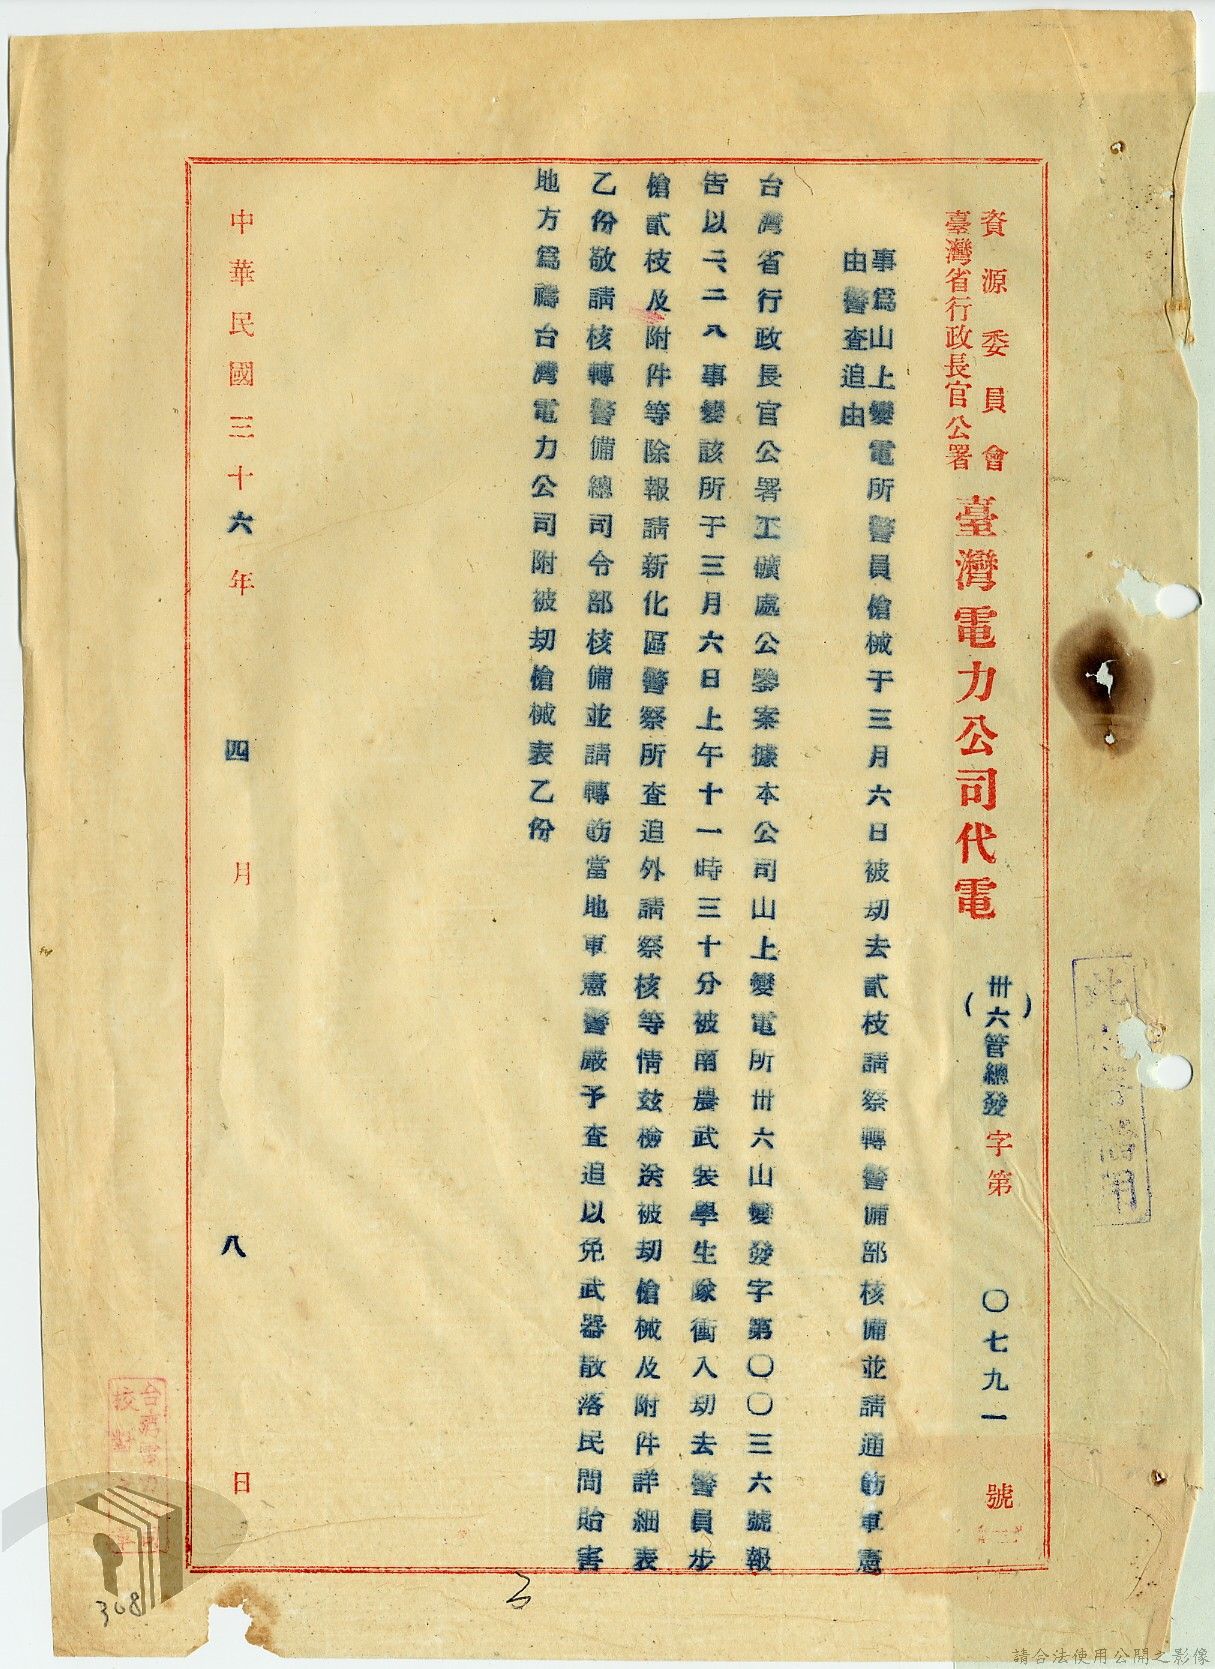 資源委員會
臺灣省行政長官公署
臺灣電力公司代電
(卅六管總發)字第〇七九一號
事爲山上變電所警員槍械于三月六日被刧去貳枝請察轉警備部核備並請通飭軍憲
由警查追由
台灣省行政長官公署工礦處公鑒案據本公司山上變電所卅六山變發字第〇〇三六號報
告以二、二八事變該所于三月六日上午十一時三十分被南農武裝學生隊衝入刧去警員步
槍貳枝及附件等除報請新化區警察所查追外請察核等情玆檢送被刧槍械及附件詳細表
乙份敬請核轉警備總司令部核備並請轉飭當地軍憲警嚴予查追以免武器散落民間貽害
地方爲禱台灣電力公司附被刧槍械表乙份
中華民國三十六年四月八日
308
請合法使用公開之影像